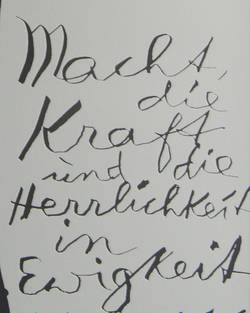 Macht,
die
Kraft
und die
Herrlichkeit
in
Ewigkeit